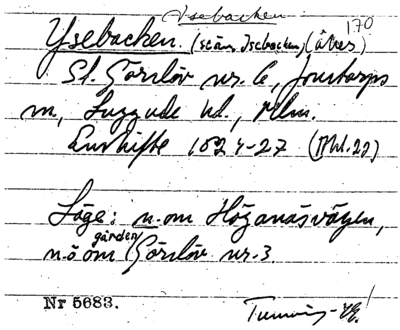 Isebacken
170
Ysebacken. (senare Isebacken) (åker)
St. Görslöv nr. 6, Fjärestorps
m, Luggude hd., Mlm.
Enskifte 1824-27 (Bhl.20)
Läge: n. om Höganäsvägen,
n.ö om gården Görslöv nr. 3.
Nr 5683.